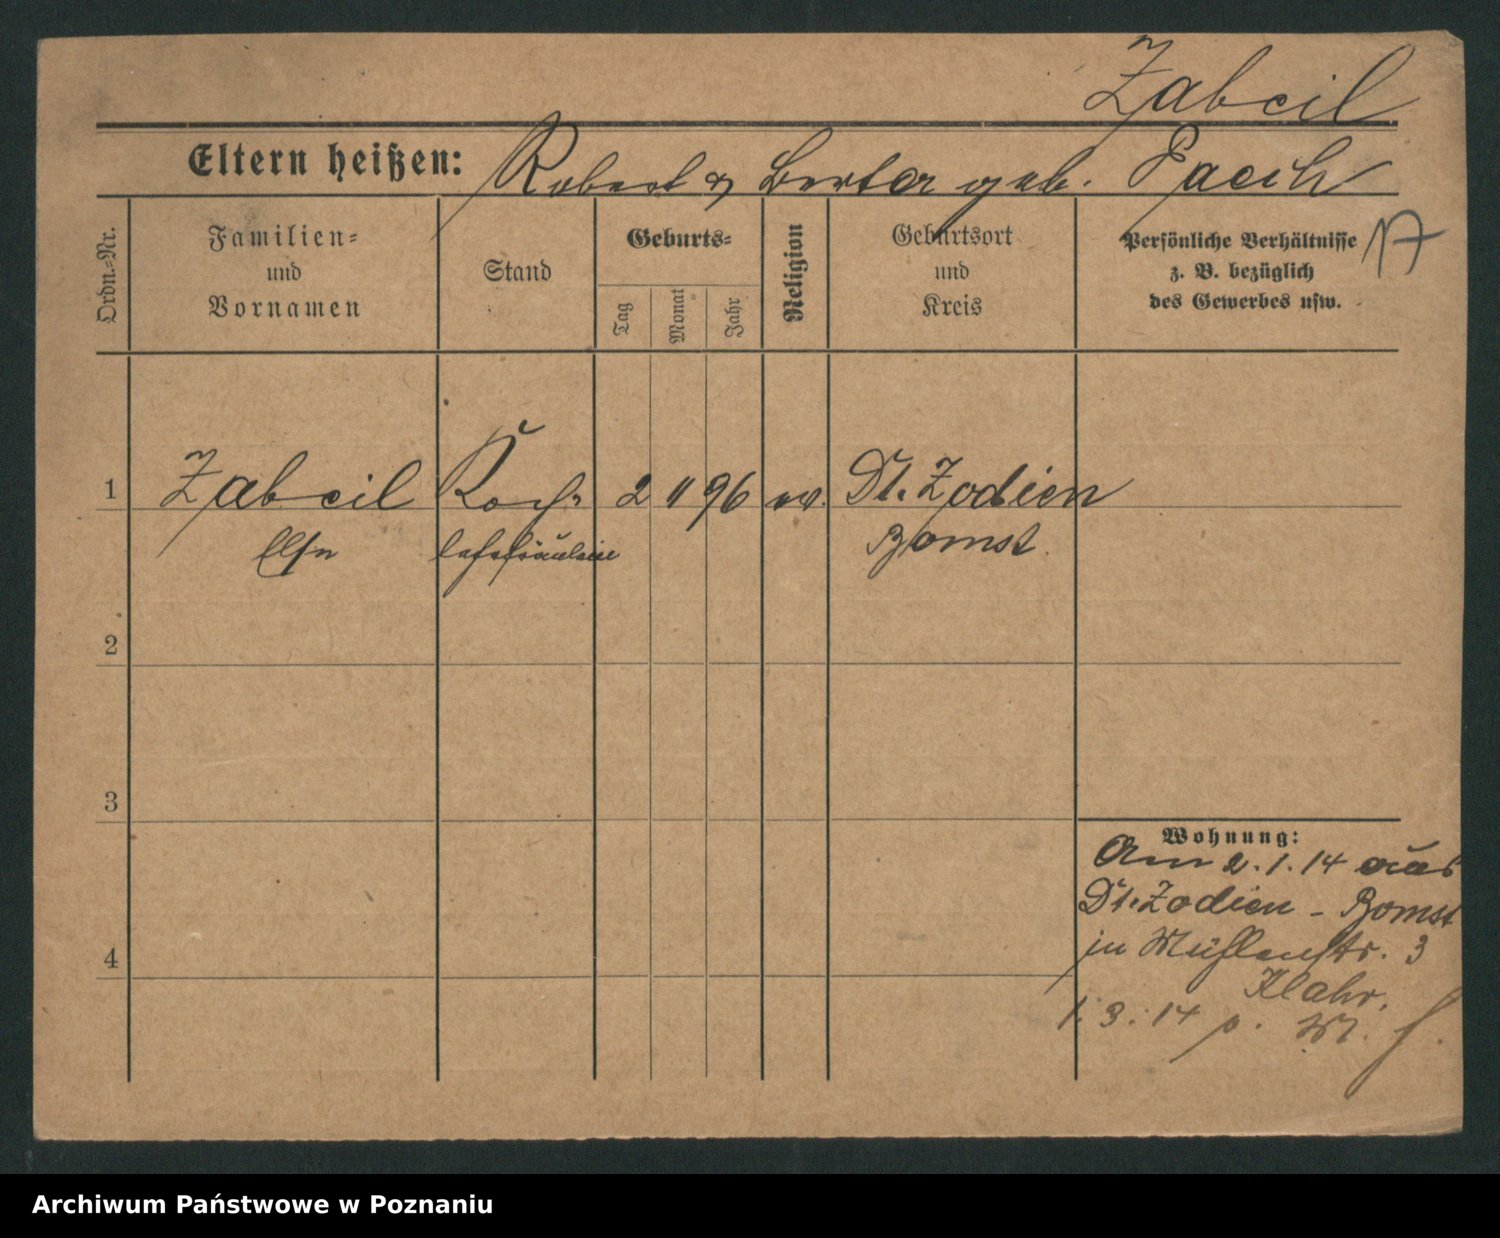 Zabeil
Eltern heißen: Robert & Berta geb. Paech
17
Ordn.-Nr.
Familien-
und
Vornamen
Stand
Geburts-
Tag
Monat
Jahr
Religion
Geburtsort
und
Kreis
Persönliche Verhältnisse
z. B. bezüglich
des Gewerbes usw.
1 Zabeil Koch- 2 11 96 ev. Dt. Zodien
Else lehrfräulein Bomst
2
3
4
Wohnung:
Am 2.1.14 aus
Dt. Zodien - Bomst
in Mühlenstr. 3
Klahr.
1.3.14 p. M.
Archiwum Państwowe w Poznaniu